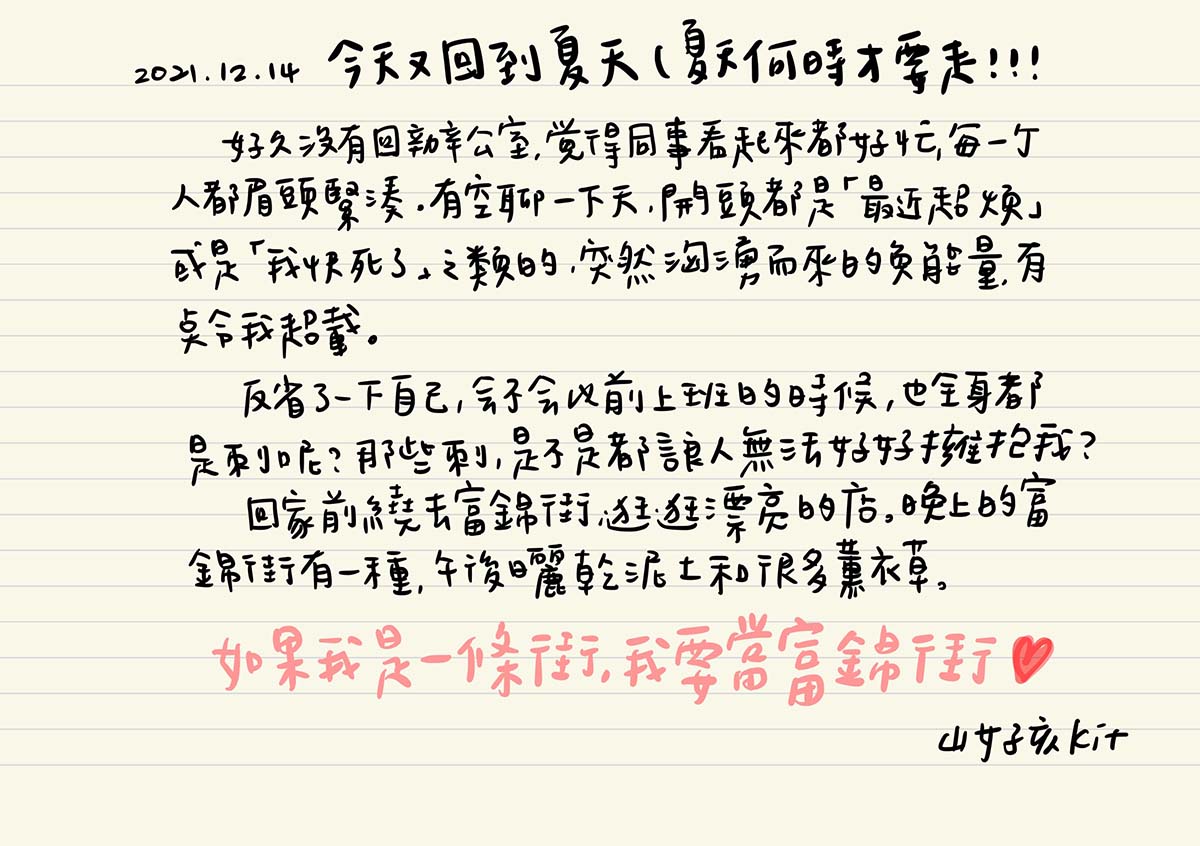 2021.12.14 今天又回到夏天(夏天何時才要走!!!
好久沒有回辦公室,覺得同事看起來都好忙,每一个
人都眉頭緊湊。有空聊一下天,開頭都是「最近超煩」
或是「我快死了」之類的,突然洶湧而來的負能量,有
点令我超載。
反省了一下自己,会不会以前上班日的時候,也全身都
是刺呢?那些刺,是不是都讓人無法好好擁抱我?
回家前繞去富錦街,逛逛漂亮的店。晚上的富
錦街有一種,午後曬乾泥土和很多薰衣草。
如果我是一條街,我要當富錦街♥
山女孩Kit